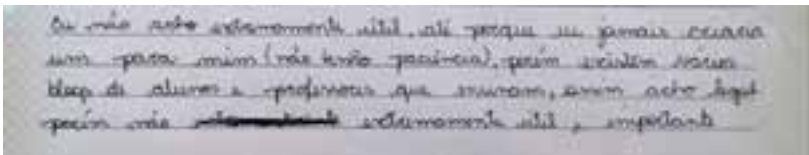 Eu não acho extremamente útil, até porque eu jamais criaria
um para mim (não tenho paciência), porém existem vários
blogs de alunos e professores que ensinam, assim acho legal
porém não extremamente útil, importante